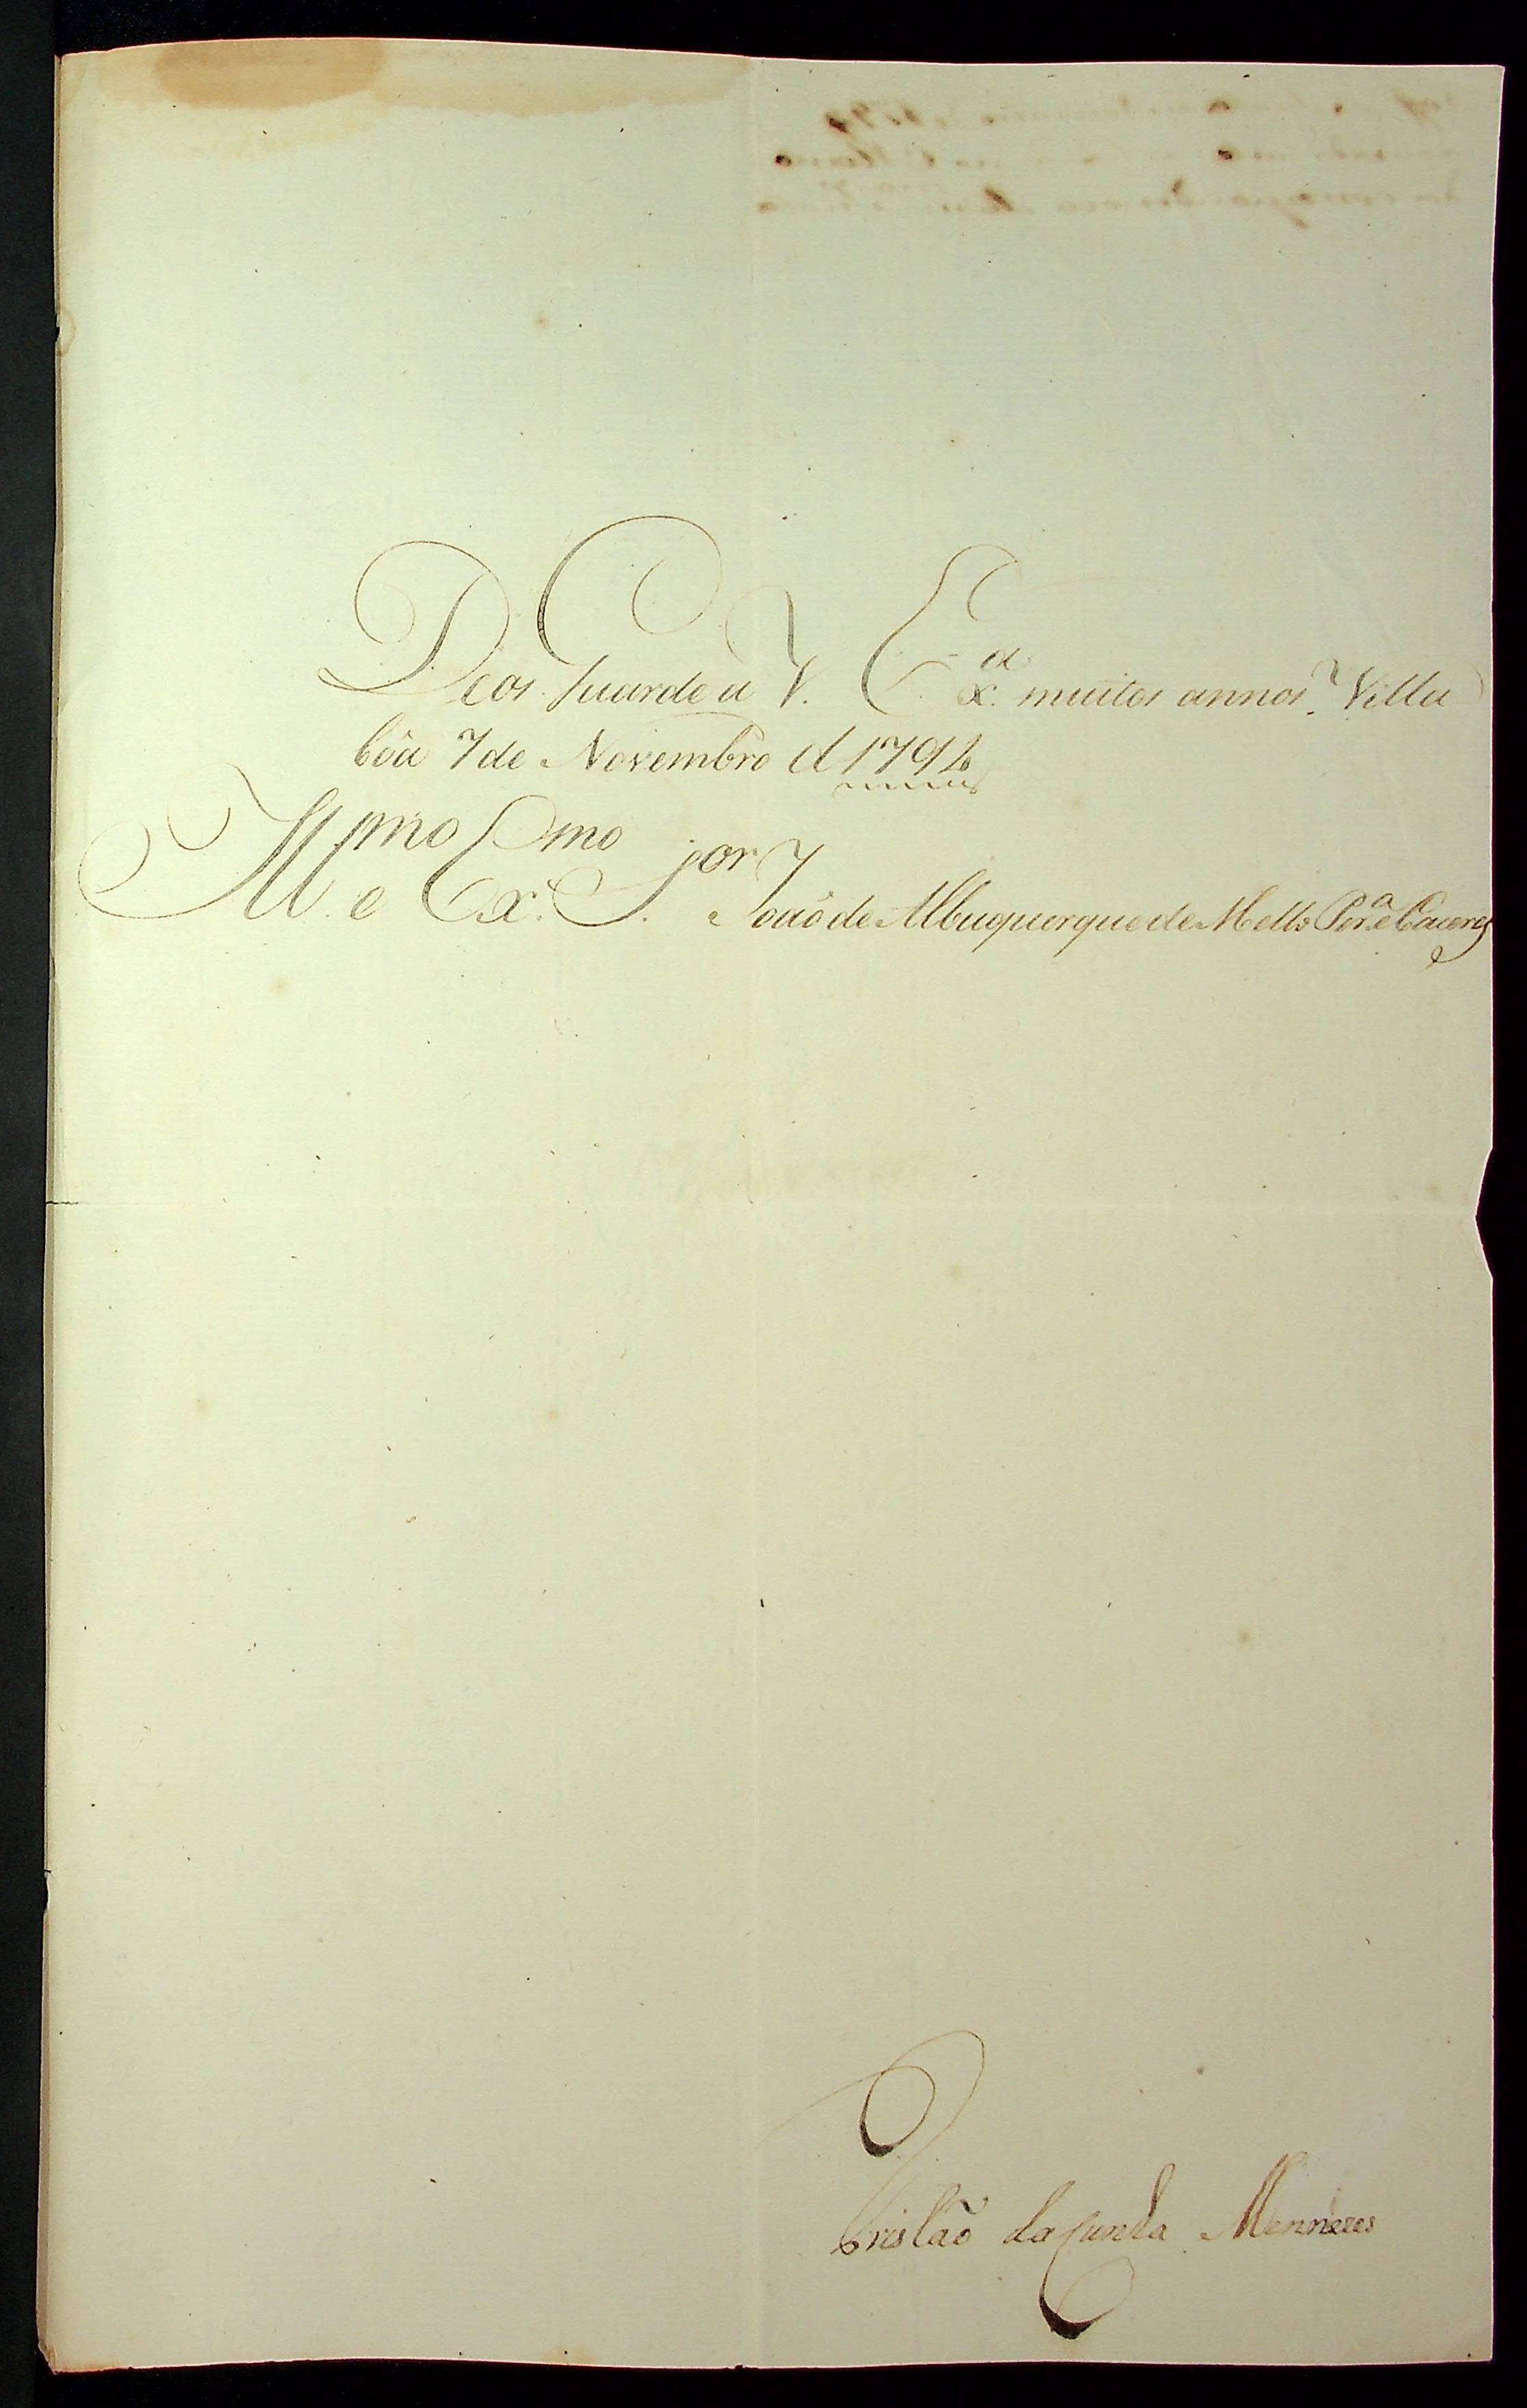 Deos Guarde a V. Ex.ª muitos annos. Villa
boa 7 de Novembro d 1794
Ill.mo e Ex.mo S.or João de Albuquerque de Mello Per.ª e Caceres
Tristão da Cunha Mennezes